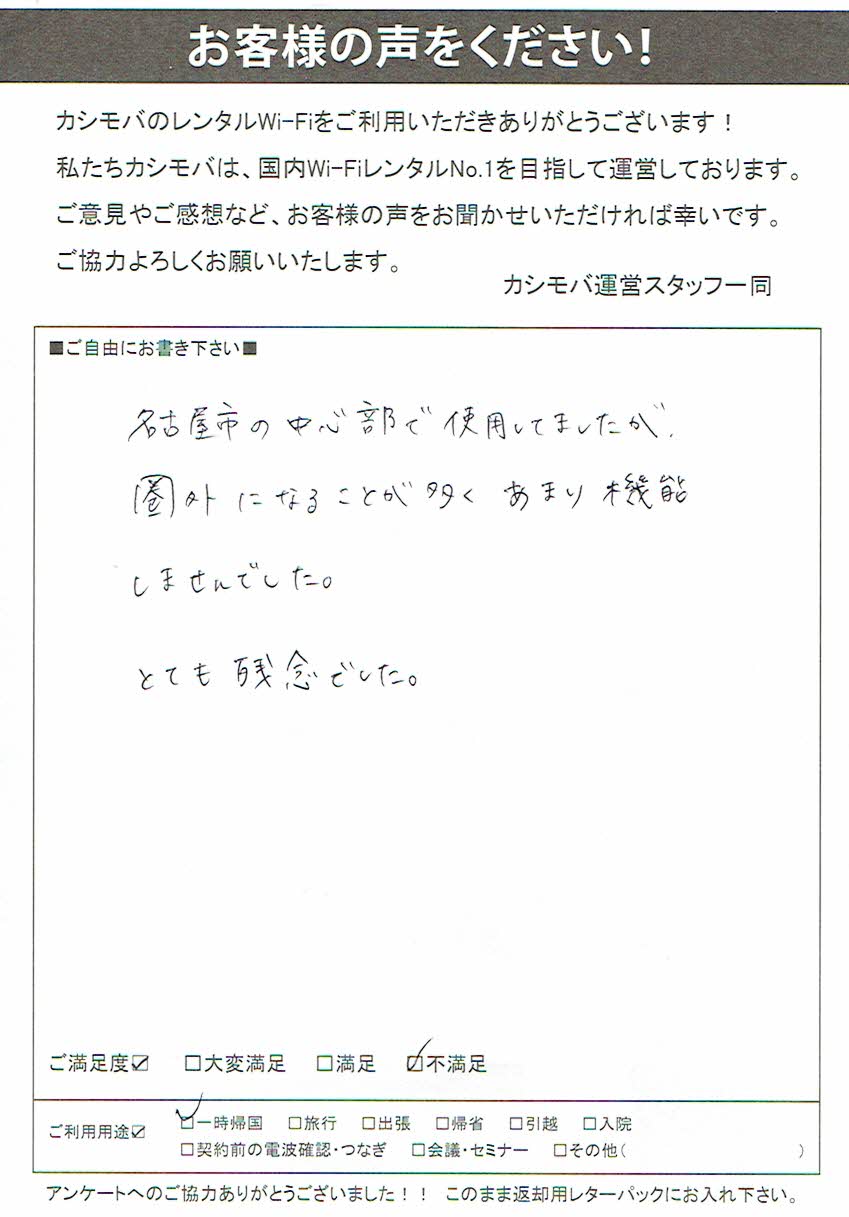 お客様の声をください!
カシモバのレンタルWi-Fiをご利用いただきありがとうございます！
私たちカシモバは、国内Wi-FiレンタルNo.1を目指して運営しております。
ご意見やご感想など、お客様の声をお聞かせいただければ幸いです。
ご協力よろしくお願いいたします。
カシモバ運営スタッフ一同
■ご自由にお書き下さい■
名古屋市の中心部で使用してましたが、
圏外になることが多くあまり機能
しませんでした。
とても残念でした。
ご満足度☑ □大変満足 □満足 ☑不満足
ご利用用途☑ ☑一時帰国 □旅行 □出張 □帰省 □引越 □入院
□契約前の電波確認・つなぎ □会議・セミナー □その他( )
アンケートへのご協力ありがとうございました！！ このまま返却用レターパックにお入れ下さい。